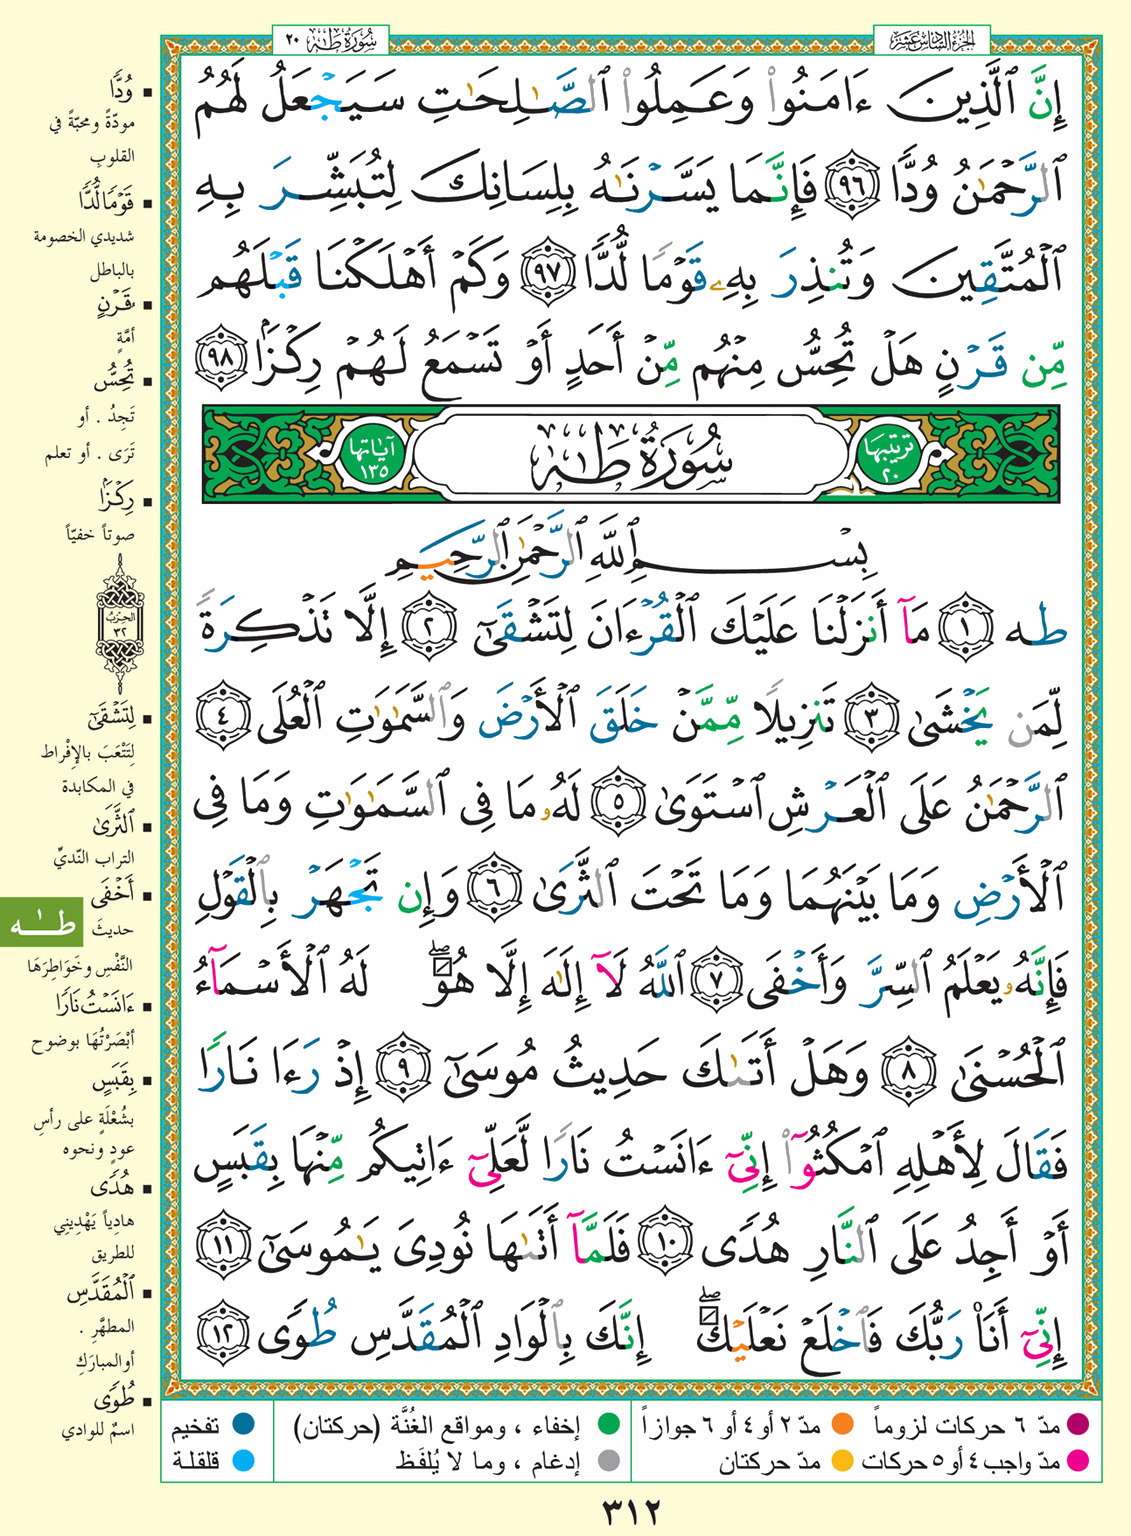 سُورَةُ طٰهٰ ٢٠
الجزء السادس عشر
إِنَّ ٱلَّذِينَ ءَامَنُوا۟ وَعَمِلُوا۟ ٱلصَّٰلِحَٰتِ سَيَجْعَلُ لَهُمُ
ٱلرَّحْمَٰنُ وُدًّا ٩٦ فَإِنَّمَا يَسَّرْنَٰهُ بِلِسَانِكَ لِتُبَشِّرَ بِهِ
ٱلْمُتَّقِينَ وَتُنذِرَ بِهِۦ قَوْمًا لُّدًّا ٩٧ وَكَمْ أَهْلَكْنَا قَبْلَهُم
مِّن قَرْنٍ هَلْ تُحِسُّ مِنْهُم مِّنْ أَحَدٍ أَوْ تَسْمَعُ لَهُمْ رِكْزًۢا ٩٨
ترتيبها ٢٠
سُورَةُ طٰهٰ
آياتها ١٣٥
بِسْمِ ٱللَّهِ ٱلرَّحْمَٰنِ ٱلرَّحِيمِ
طه ١ مَآ أَنزَلْنَا عَلَيْكَ ٱلْقُرْءَانَ لِتَشْقَىٰٓ ٢ إِلَّا تَذْكِرَةً
لِّمَن يَخْشَىٰ ٣ تَنزِيلًا مِّمَّنْ خَلَقَ ٱلْأَرْضَ وَٱلسَّمَٰوَٰتِ ٱلْعُلَى ٤
ٱلرَّحْمَٰنُ عَلَى ٱلْعَرْشِ ٱسْتَوَىٰ ٥ لَهُۥ مَا فِى ٱلسَّمَٰوَٰتِ وَمَا فِى
ٱلْأَرْضِ وَمَا بَيْنَهُمَا وَمَا تَحْتَ ٱلثَّرَىٰ ٦ وَإِن تَجْهَرْ بِٱلْقَوْلِ
فَإِنَّهُۥ يَعْلَمُ ٱلسِّرَّ وَأَخْفَى ٧ ٱللَّهُ لَآ إِلَٰهَ إِلَّا هُوَ ۖ لَهُ ٱلْأَسْمَآءُ
ٱلْحُسْنَىٰ ٨ وَهَلْ أَتَىٰكَ حَدِيثُ مُوسَىٰٓ ٩ إِذْ رَءَا نَارًا
فَقَالَ لِأَهْلِهِ ٱمْكُثُوٓا۟ إِنِّىٓ ءَانَسْتُ نَارًا لَّعَلِّىٓ ءَاتِيكُم مِّنْهَا بِقَبَسٍ
أَوْ أَجِدُ عَلَى ٱلنَّارِ هُدًى ١٠ فَلَمَّآ أَتَىٰهَا نُودِىَ يَٰمُوسَىٰٓ ١١
إِنِّىٓ أَنَا۠ رَبُّكَ فَٱخْلَعْ نَعْلَيْكَ ۖ إِنَّكَ بِٱلْوَادِ ٱلْمُقَدَّسِ طُوًى ١٢
وُدًّا
مودّةً ومحبّةً في
القلوبِ
قَوْمًا لُّدًّا
شديدي الخصومة
بالباطل
قَرْنٍ
أمّةٍ
تُحِسُّ
تَجِدُ . أو
تَرَى . أو تعلم
رِكْزًۢا
صوتاً خفيّاً
الحزب
٣٢
لِتَشْقَىٰٓ
لِتَتْعَبَ بالإفْراط
في المكابدة
ٱلثَّرَىٰ
التراب النّديِّ
أَخْفَى
حديثَ
النَّفْسِ وخَوَاطِرَهَا
طٰه
ءَانَسْتُ نَارًا
أبْصَرْتُهَا بوضوح
بِقَبَسٍ
بشُعْلَةٍ على رأسِ
عودٍ ونحوه
هُدًى
هادِياً يَهْدِينِي
للطريق
ٱلْمُقَدَّسِ
المطهَّرِ .
أوالمبارَكِ
طُوًى
اسمٌ للوادي
مدّ ٦ حركات لزوماً
مدّ ٢ أو ٤ أو ٦ جوازاً
إخفاء ، ومواقع الغُنَّة (حركتان)
تفخيم
مدّ واجب ٤ أو ٥ حركات
مدّ حركتان
إدغام ، وما لا يُلفَظ
قلقلة
٣١٢